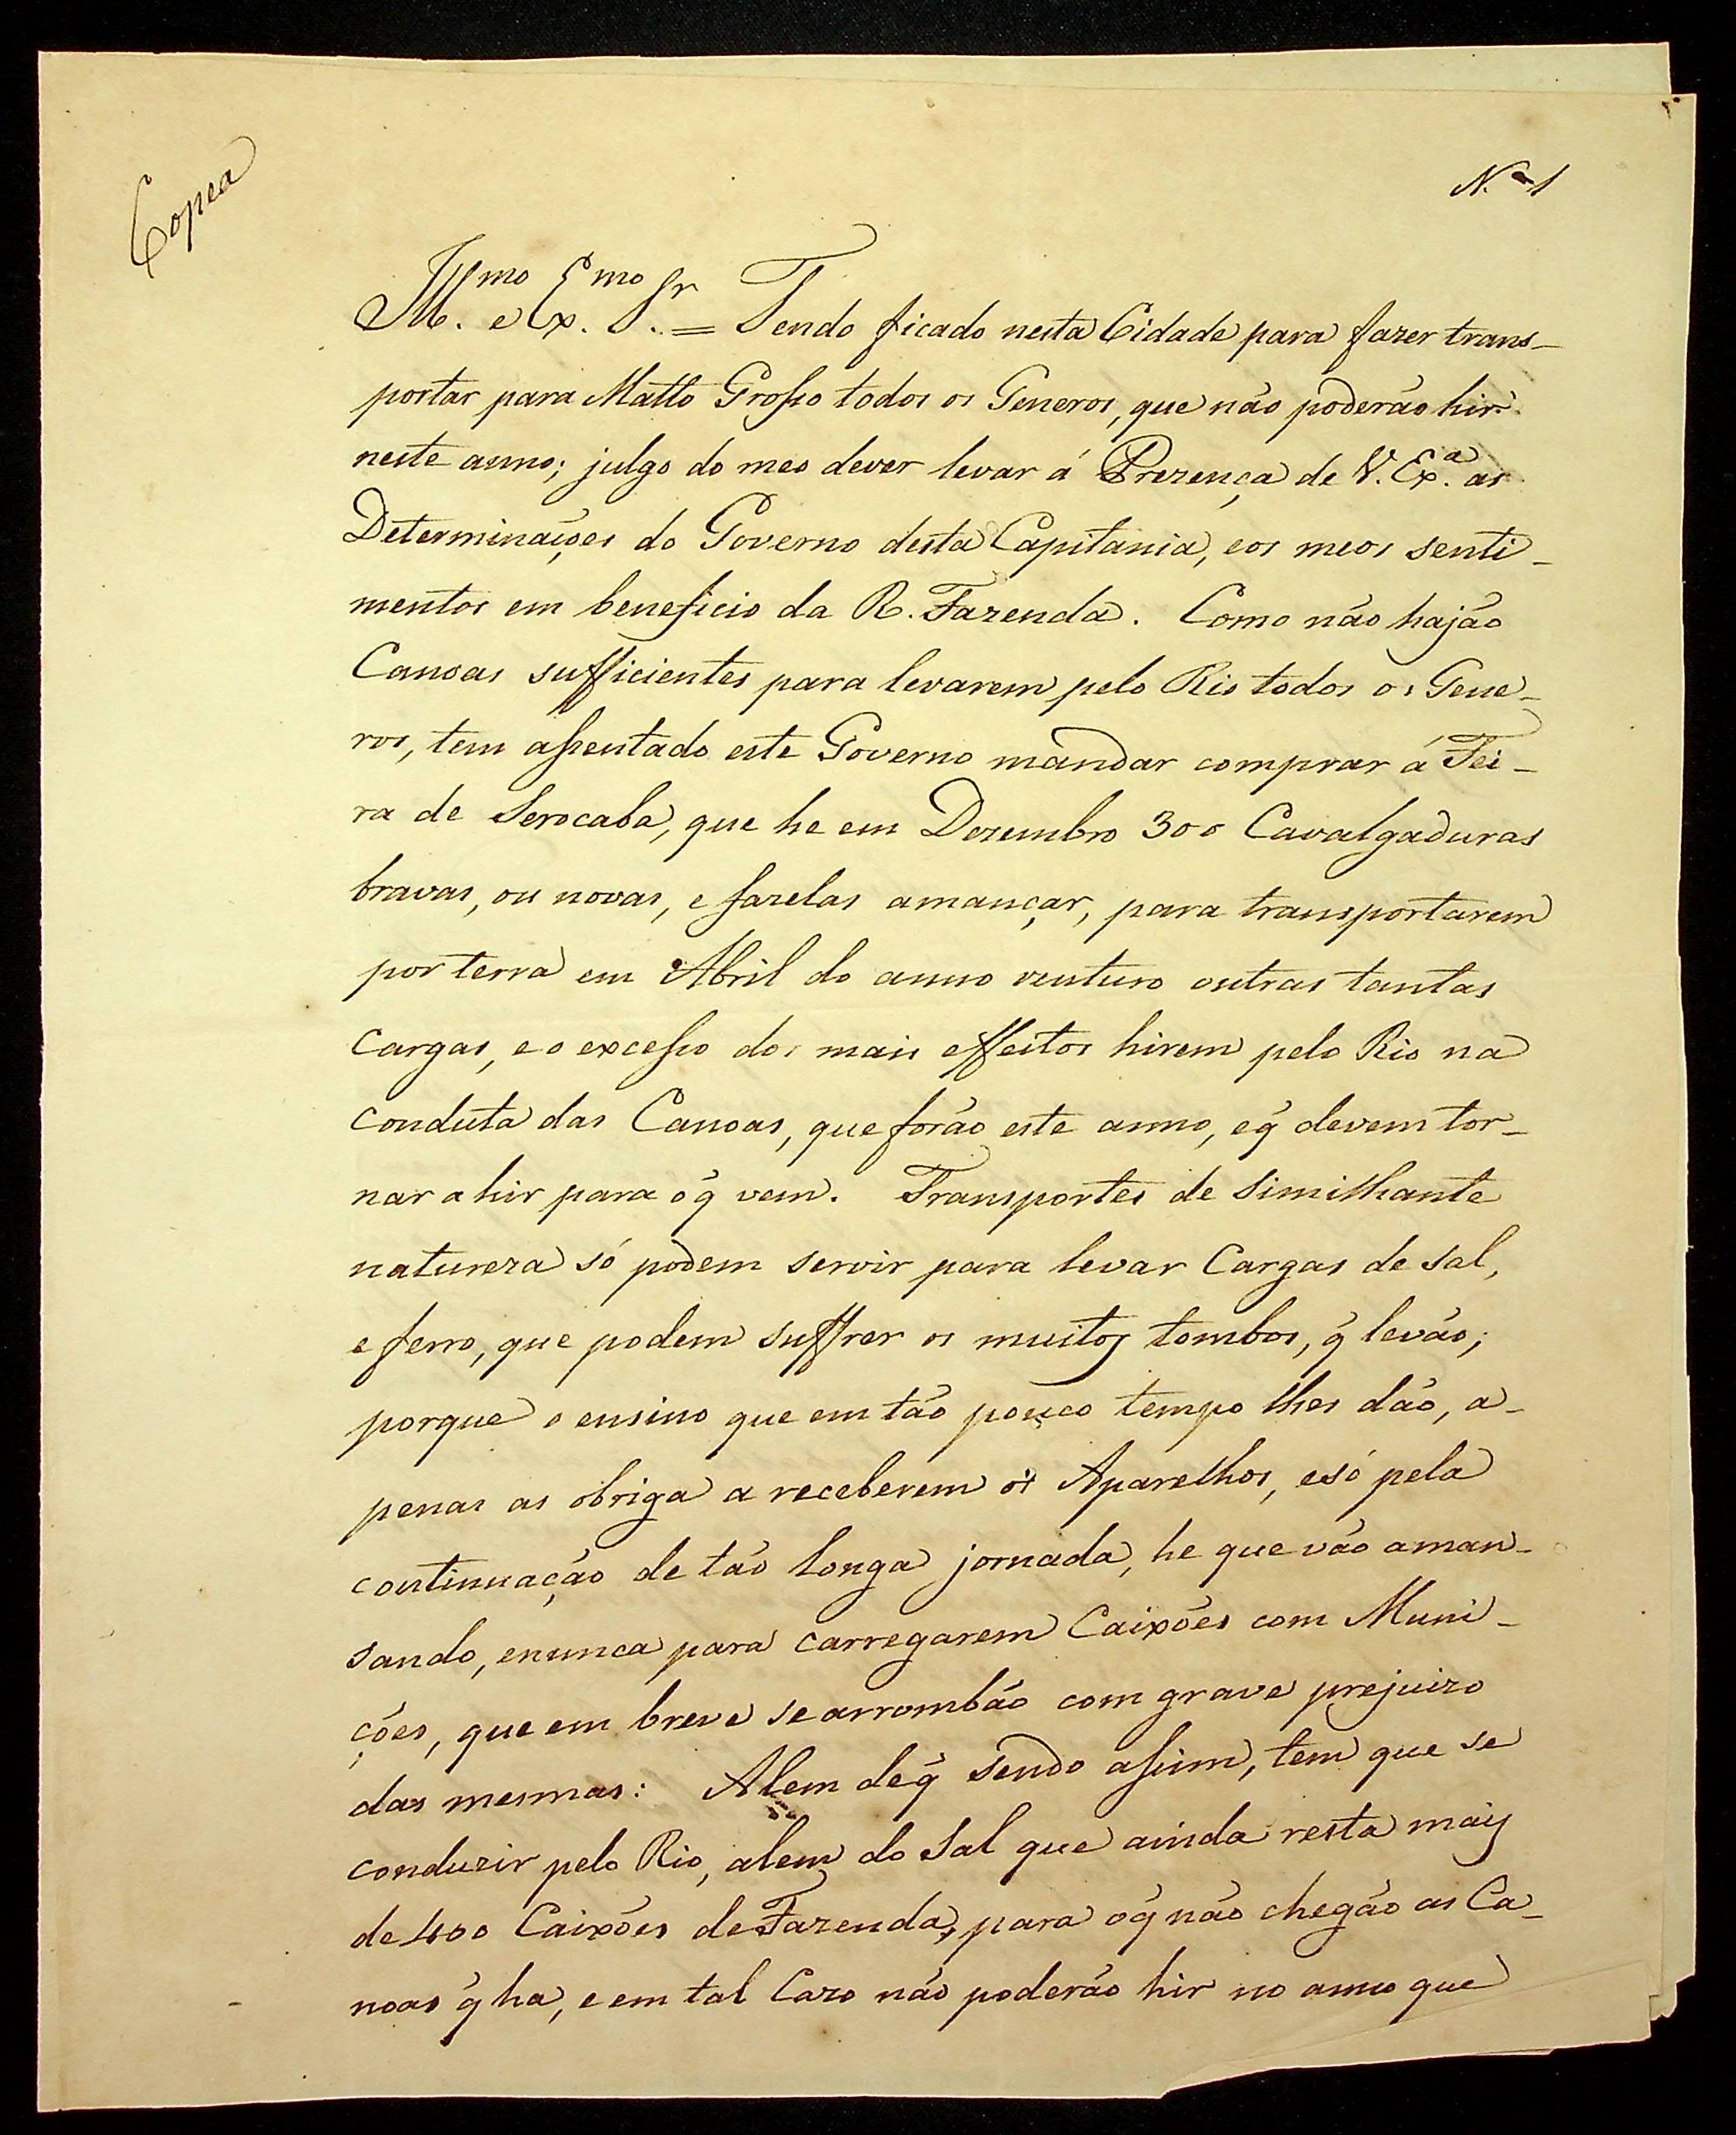 Copea
N.º 1
Ill.mo e Ex.mo Sr. = Tendo ficado nesta Cidade para fazer trans-
portar para Matto Grosso todos os Generos, que não poderão hir
neste anno; julgo do meo dever levar á Prezença de V. Ex.a as
Determinaçoẽs do Governo desta Capitania, eos meos senti-
mentos em beneficio da R. Fazenda. Como não hajão
Canoas sufficientes para levarem pelo Rio todos os Gene-
ros, tem assentado este Governo mandar comprar á Fei-
ra de Serocaba, que he em Dezembro 300 Cavalgaduras
bravas, ou novas, e fazelas amançar, para transportarem
por terra em Abril do anno venturo outras tantas
Cargas, e o excesso dos mais effeitos hirem pelo Rio na
conduta das Canoas, que forão este anno, e q̃ devem tor-
nar a hir para o q̃ vem. Transportes de similhante
natureza só podem servir para levar Cargas de sal,
e ferro, que podem suffrer os muitos tombos, q̃ levão;
porque o ensino que em tão pouco tempo lhes dão, a-
penas as obriga a receberem os Aparelhos, e só pela
continuação de tão longa jornada, he que vão aman-
sando, enunca para carregarem Caixões com Muni-
ções, que em breve se arrombão com grave prejuizo
das mesmas: Alem de q̃ sendo assim, tem que se
conduzir pelo Rio, alem do sal que ainda resta mais
de 400 Caixões de Fazenda, para o q̃ não chegão as Ca-
noas q̃ ha, e em tal Cazo não poderão hir no anno que